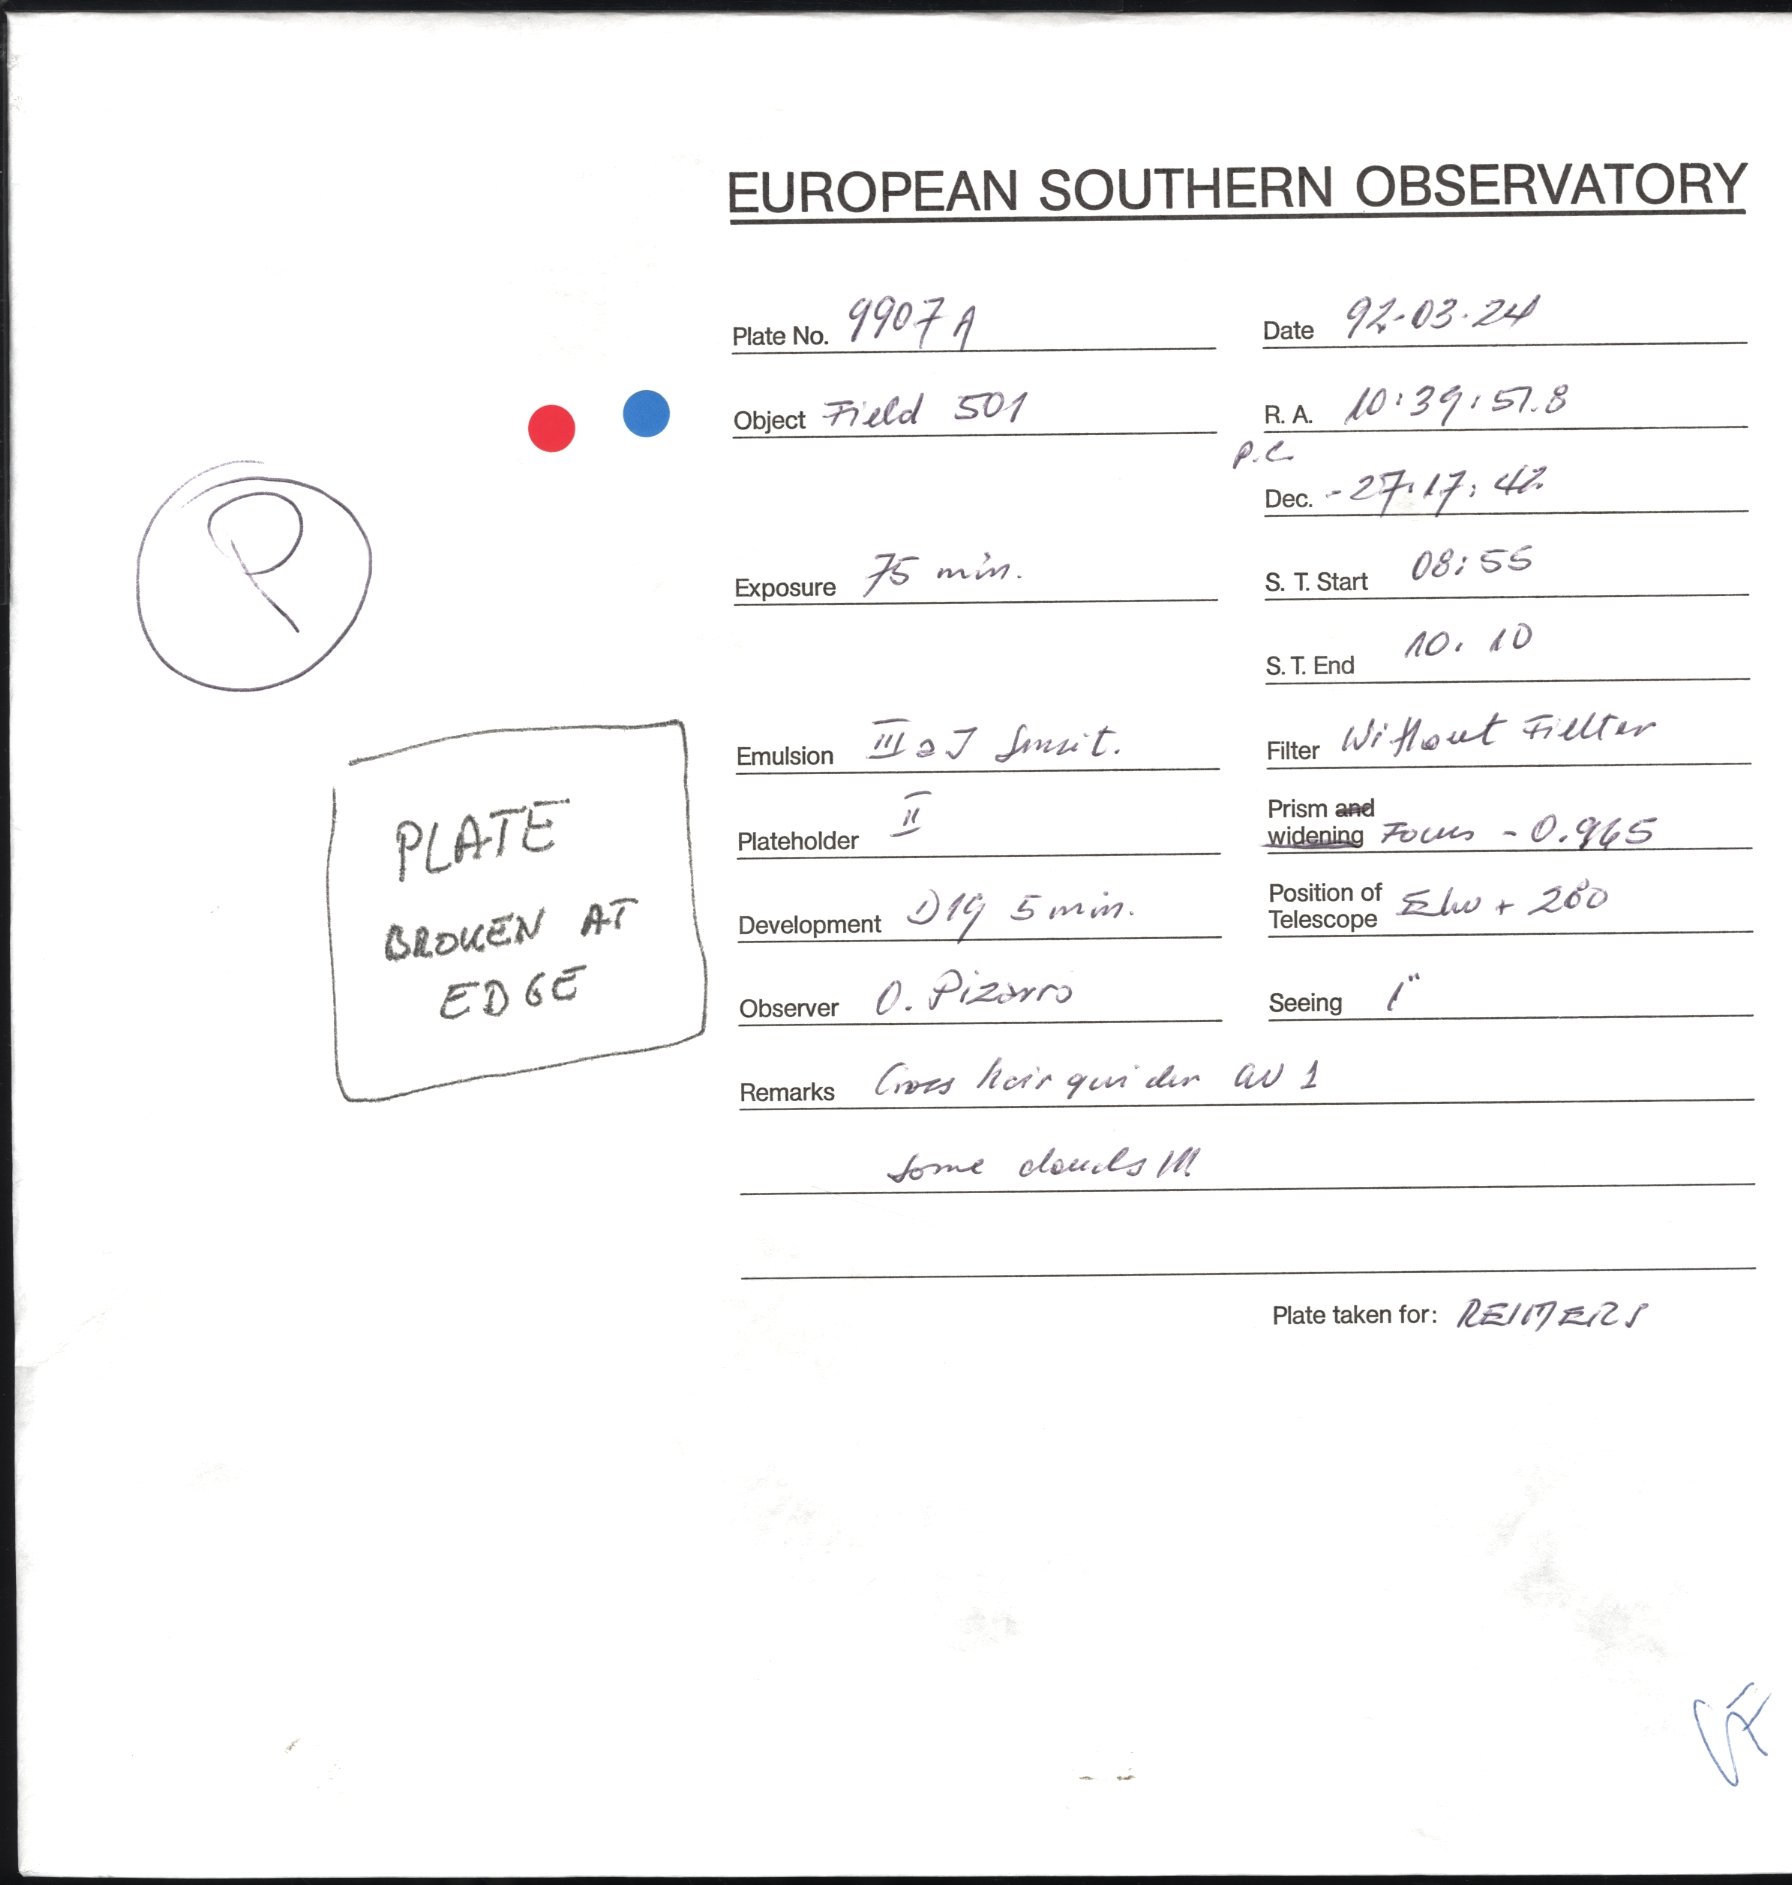 EUROPEAN SOUTHERN OBSERVATORY
Plate No. 9907 A
Date 92-03-24
Object Field 501
R. A. 10:39:57.8
P.C.
Dec. -27:17:42
Exposure 75 min.
S. T. Start 08:55
S. T. End 10:10
Emulsion III a J Sensit.
Filter Without Fielter
Plateholder II
Prism and widening Focus - 0.965
Development D19 5 min.
Position of Telescope + 280
Observer O. Pizarro
Seeing 1"
Remarks Cross hair guider 1
Some clouds !!!
Plate taken for: REIMERS
P
PLATE
BROKEN AT
EDGE